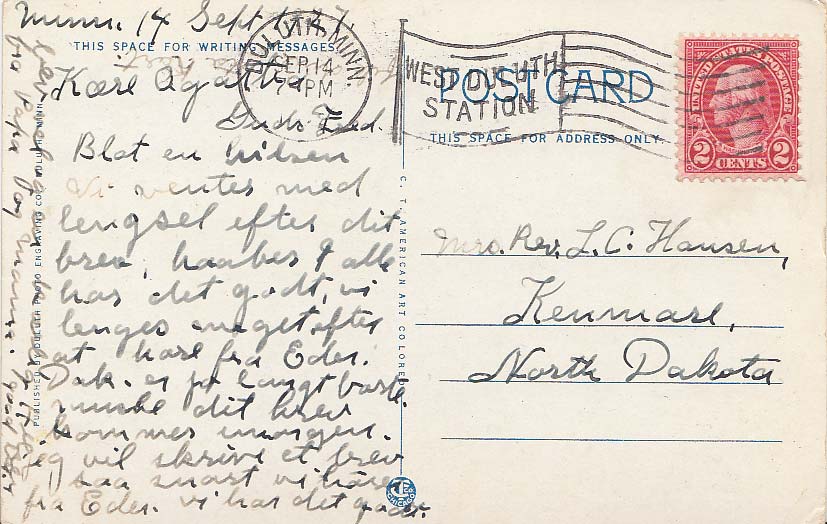 Minn. 14 Sept 1927.
THIS SPACE FOR WRITING MESSAGES
Kære Agatha
Guds Fred.
Blot en hilsen
Vi ventes med
lengsel efter dit
brev, haaber I alle
har det godt, vi
lenges meget efter
at høre fra Eder.
Dak. er jo langt borte.
maske dit brev
kommer imorgen.
jeg vil skrive et brev
saa snart vi hører
fra Eder. vi har det godt.
fra Papa og Mamma.
DULUTH, MINN.
SEP 14
7 PM
WEST DULUTH
STATION
POST CARD
THIS SPACE FOR ADDRESS ONLY.
UNITED STATES POSTAGE
2 CENTS 2
Mrs. Rev. L. C. Hansen,
Kenmare,
North Dakota
PUBLISHED BY DULUTH PHOTO ENGRAVING CO., DULUTH, MINN.
C. T. AMERICAN ART COLORED
CHICAGO